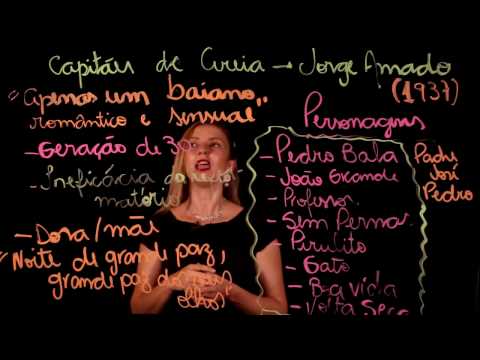 Capitães de Areia → Jorge Amado
(1937)
"Apenas um baiano
romântico e sensual"
- Geração de 30
- Ineficácia do refor-
matório
- Dora/mãe
"Noite de grande paz,
grande paz dos seus
olhos
Personagens
- Pedro Bala
- João Grande
- Professor
- Sem Pernas
- Pirulito
- Gato
- Boa vida
- Volta Seca
Padre
José
Pedro